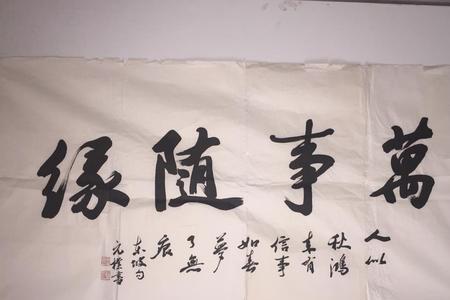 萬事随緣
人似
秋鴻
来有
信事
如春
夢
了無
痕
东坡句
書